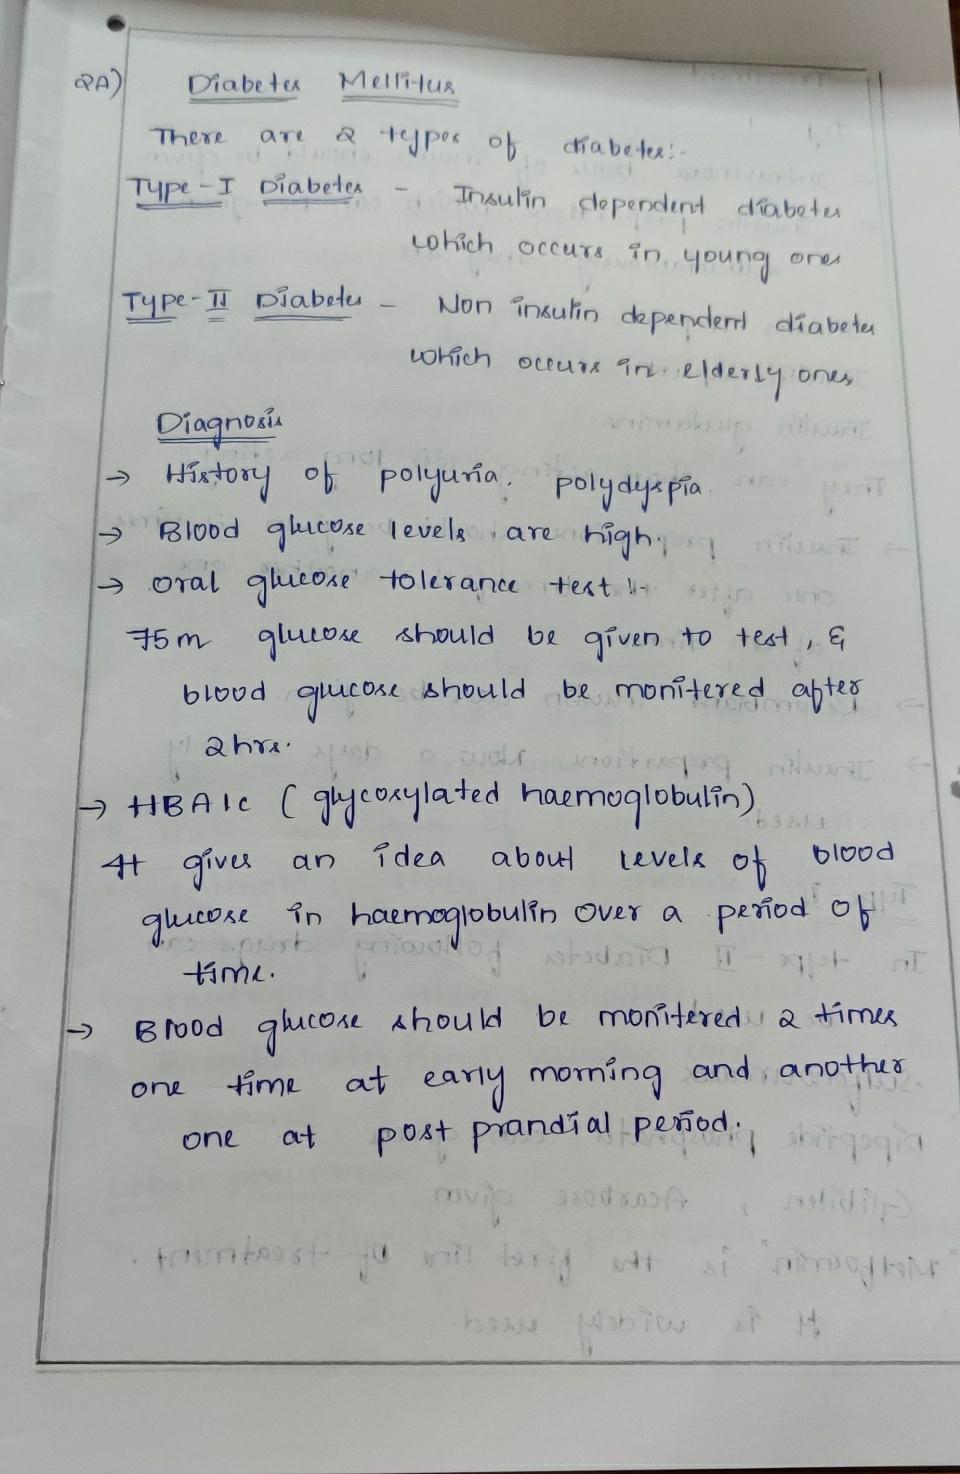 2A) Diabetes Mellitus
There are 2 types of diabetes:-
Type-I Diabetes - Insulin dependent diabetes
which occurs in young ones
Type-II Diabetes - Non insulin dependent diabetes
which occurs in elderly ones
Diagnosis
→ History of polyuria, polydyspia.
→ Blood glucose levels are high.
→ Oral glucose tolerance test :-
75m glucose should be given to test, &
blood glucose should be monitered after
2hrs.
→ HBA1C (glycosylated haemoglobulin)
It gives an idea about levels of blood
glucose in haemoglobulin over a period of
time.
→ Blood glucose should be monitered 2 times
one time at early morning and another
one at post prandial period.